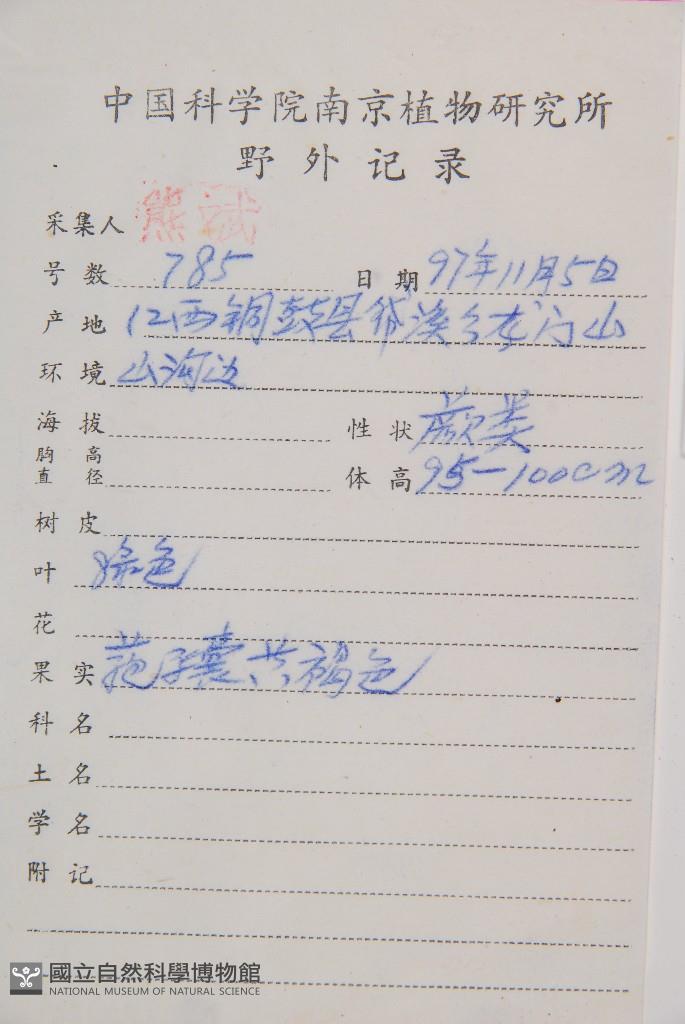 中国科学院南京植物研究所
野外记录
采集人 熊斌
号数 785 日期 97年11月5日
产地 江西铜鼓县 溪乡龙门山
环境 山沟边
海拔 性状 蕨类
胸高直径 体高 95-100cm
树皮
叶 绿色
花
果实 孢子囊 褐色
科名
土名
学名
附记
國立自然科學博物館
NATIONAL MUSEUM OF NATURAL SCIENCE